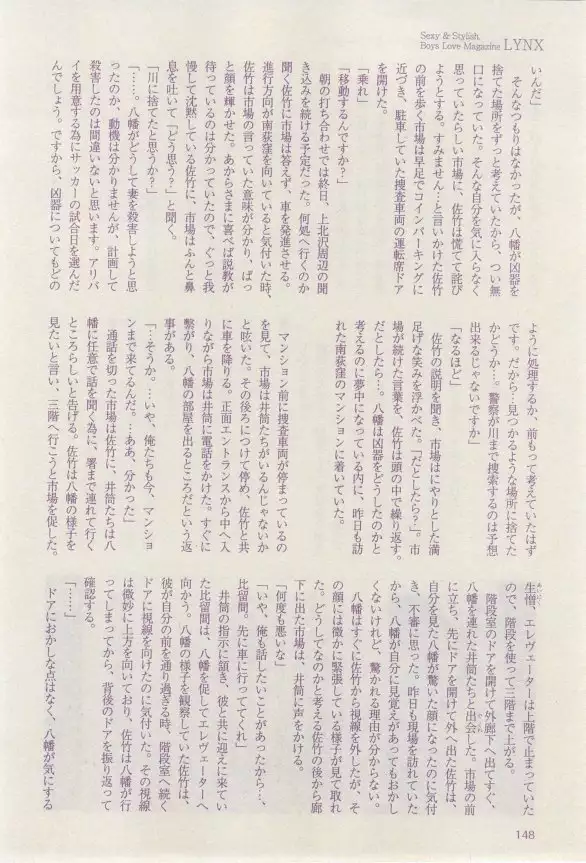 Sexy & Stylish,
Boys Love Magazine LYNX
いんだ」
　そんなつもりはなかったが、八幡が凶器を
捨てた場所をずっと考えていたから、つい無
口になっていた。そんな自分を気に入らなく
思っていたらしい市場に、佐竹は慌てて詫び
ようとする。すみません…と言いかけた佐竹
の前を歩く市場は早足でコインパーキングに
近づき、駐車していた捜査車両の運転席ドア
を開けた。
「乗れ」
「移動するんですか?」
　朝の打ち合わせでは終日、上北沢周辺の聞
き込みを続ける予定だった。何処へ行くのか
聞く佐竹に市場は答えず、車を発進させる。
進行方向が南荻窪を向いていると気付いた時、
佐竹は市場の言っていた意味が分かり、ぱっ
と顔を輝かせた。あからさまに喜べば説教が
待っているのは分かっていたので、ぐっと我
慢して沈黙している佐竹に、市場はふんと鼻
息を吐いて「どう思う?」と聞く。
「川に捨てたと思うか?」
「……。八幡がどうして妻を殺害しようと思
ったのか、動機は分かりませんが、計画して
殺害したのは間違いないと思います。アリバ
イを用意する為にサッカーの試合日を選んだ
んでしょう。ですから、凶器についてもどの
ように処理するか、前もって考えていたはず
です。だから…見つかるような場所に捨てた
かどうか…。警察が川まで捜索するのは予想
出来るじゃないですか」
「なるほど」
　佐竹の説明を聞き、市場はにやりとした満
足げな笑みを浮かべた。「だとしたら?」。市
場が続けた言葉を、佐竹は頭の中で繰り返す。
だとしたら…。八幡は凶器をどうしたのかと
考えるのに夢中になっている内に、昨日も訪
れた南荻窪のマンションに着いていた。
　マンション前に捜査車両が停まっているの
を見て、市場は井筒たちがいるんじゃないか
と呟いた。その後ろにつけて停め、佐竹と共
に車を降りる。正面エントランスから中へ入
りながら市場は井筒に電話をかけた。すぐに
繋がり、八幡の部屋を出るところだという返
事がある。
「…そうか。…いや、俺たちも今、マンショ
ンまで来てるんだ。…ああ、分かった」
　通話を切った市場は佐竹に、井筒たちは八
幡に任意で話を聞く為に、署まで連れて行く
ところらしいと告げる。佐竹は八幡の様子を
見たいと言い、三階へ行こうと市場を促した。
生憎、エレヴェーターは上階で止まっていた
ので、階段を使って三階まで上がる。
　階段室のドアを開けて外廊下へ出てすぐ、
八幡を連れた井筒たちと出会した。市場の前
に立ち、先にドアを開けて外へ出た佐竹は、
自分を見た八幡が驚いた顔になったのに気付
き、不審に思った。昨日も現場を訪れていた
から、八幡が自分に見覚えがあってもおかし
くないけれど、驚かれる理由が分からない。
　八幡はすぐに佐竹から視線を外したが、そ
の顔には微かに緊張している様子が見て取れ
た。どうしてなのかと考える佐竹の後から廊
下に出た市場は、井筒に声をかける。
「何度も悪いな」
「いや、俺も話したいことがあったから…、
比留間。先に車に行っててくれ」
　井筒の指示に頷き、彼と共に迎えに来てい
た比留間は、八幡を促してエレヴェーターへ
向かう。八幡の様子を観察していた佐竹は、
彼が自分の前を通り過ぎる時、階段室へ続く
ドアに視線を向けたのに気付いた。その視線
は微妙に上方を向いており、佐竹は八幡が行
ってしまってから、背後のドアを振り返って
確認する。
「……」
　ドアにおかしな点はなく、八幡が気にする
148